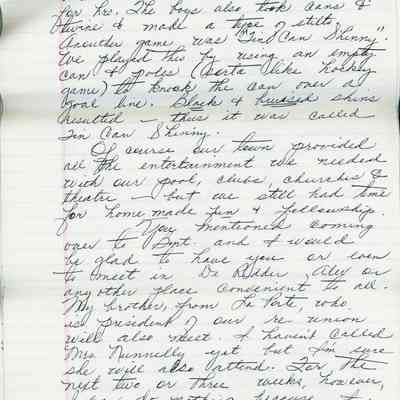 for hrs. The boys also took cans &
twine & made a type of stilt.
Another game was "Tin Can Shinny".
We played this by using an empty
can & poles (sorta like hockey
game) to knock the can over a
goal line. Black & bruised shins
resulted — thus it was called
Tin Can Shinny.
Of course our town provided
all the entertainment we needed
with our pool, clubs, churches &
theatre — but we still had time
for home made fun & fellowship.
You mentioned coming
over to and I would
be glad to have you or even
to meet in De Ridder, Alex or
any other place convenient to all.
My brother, from La Porte, who
is president of our re-union
will also meet. I haven't called
Mrs. Nunnelly yet but I'm sure
she will also attend. For the
next two or three weeks, however,
do nothing because